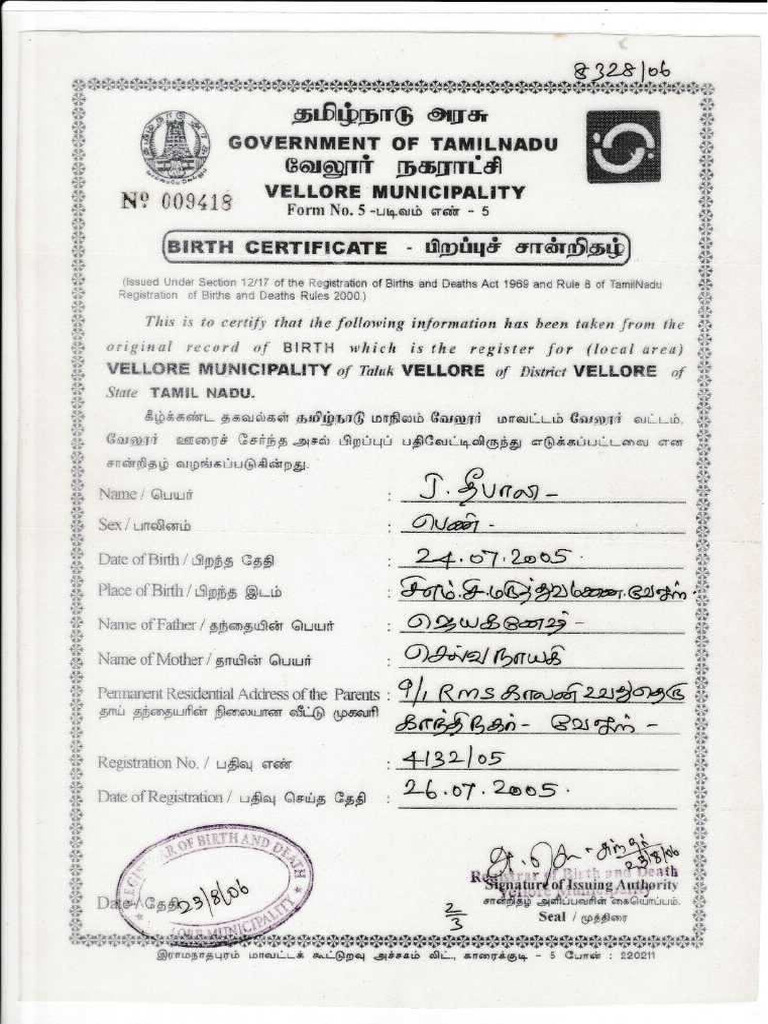 8328/06
தமிழ்நாடு அரசு
GOVERNMENT OF TAMILNADU
வேலூர் நகராட்சி
VELLORE MUNICIPALITY
Nº 009418
Form No. 5 -படிவம் எண் - 5
BIRTH CERTIFICATE - பிறப்புச் சான்றிதழ்
(Issued Under Section 12/17 of the Registration of Births and Deaths Act 1969 and Rule 8 of TamilNadu
Registration of Births and Deaths Rules 2000.)
This is to certify that the following information has been taken from the
original record of BIRTH which is the register for (local area)
VELLORE MUNICIPALITY of Taluk VELLORE of District VELLORE of
State TAMIL NADU.
கீழ்க்கண்ட தகவல்கள் தமிழ்நாடு மாநிலம் வேலூர் மாவட்டம் வேலூர் வட்டம்,
வேலூர் ஊரைச் சேர்ந்த அசல் பிறப்புப் பதிவேட்டிலிருந்து எடுக்கப்பட்டவை என
சான்றிதழ் வழங்கப்படுகின்றது.
Name / பெயர் : J. தீபாலி -
Sex / பாலினம் : பெண் -
Date of Birth / பிறந்த தேதி : 24.07.2005.
Place of Birth / பிறந்த இடம் : சி.எம்.சி. மருத்துவமனை, வேலூர்.
Name of Father / தந்தையின் பெயர் : ஜெயகணேஷ் -
Name of Mother / தாயின் பெயர் : செல்வநாயகி
Permanent Residential Address of the Parents : 9/1 RMS காலனி 2வது தெரு
தாய் தந்தையரின் நிலையான வீட்டு முகவரி காந்திநகர் - வேலூர் -
Registration No. / பதிவு எண் : 4132/05
Date of Registration / பதிவு செய்த தேதி : 26.07.2005.
REGISTRAR OF BIRTH AND DEATH
VELLORE MUNICIPALITY
Date / தேதி 23/8/06
23/8/06
Registrar of Birth and Death
Signature of Issuing Authority
Vellore Municipality
சான்றிதழ் அளிப்பவரின் கையொப்பம்.
2/3
Seal / முத்திரை
இராமநாதபுரம் மாவட்டக் கூட்டுறவு அச்சகம் லிட்., காரைக்குடி - 5 போன் : 220211